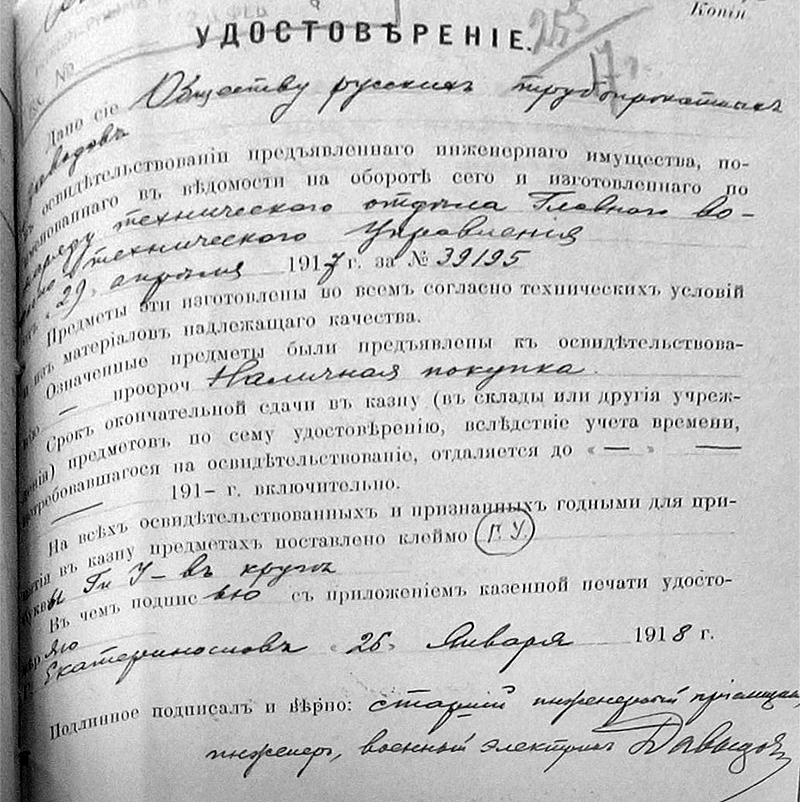 Копія
УДОСТОВѢРЕНІЕ.
253
17 г.
№
Дано сіе Обществу русскихъ трубопрокатныхъ
заводовъ
освидѣтельствованіи предъявленнаго инженернаго имущества, по-
именованнаго въ вѣдомости на оборотѣ сего и изготовленнаго по
наряду техническаго отдѣла Главнаго во-
енно техническаго Управленія
отъ „29„ апрѣля 1917 г. за № 39195
Предметы эти изготовлены во всемъ согласно техническихъ условій
и изъ матеріаловъ надлежащаго качества.
Означенные предметы были предъявлены къ освидѣтельствова-
нію — просроч Наличная покупка.
Срокъ окончательной сдачи въ казну (въ склады или другія учреж-
денія) предметовъ по сему удостовѣренію, вслѣдствіе учета времени,
потребовавшагося на освидѣтельствованіе, отдаляется до « — » —
— 191- г. включительно.
На всѣхъ освидѣтельствованныхъ и признанныхъ годными для при-
нятія въ казну предметахъ поставлено клеймо Г. У.
буквы Г и У — въ кругѣ
Въ чемъ подписью съ приложеніемъ казенной печати удосто-
вѣряю
Г. Екатеринославъ „26„ Января 1918 г.
Подлинное подписалъ и вѣрно: старшій инженерный пріемщик,
инженеръ, военный электрикъ Давыдов